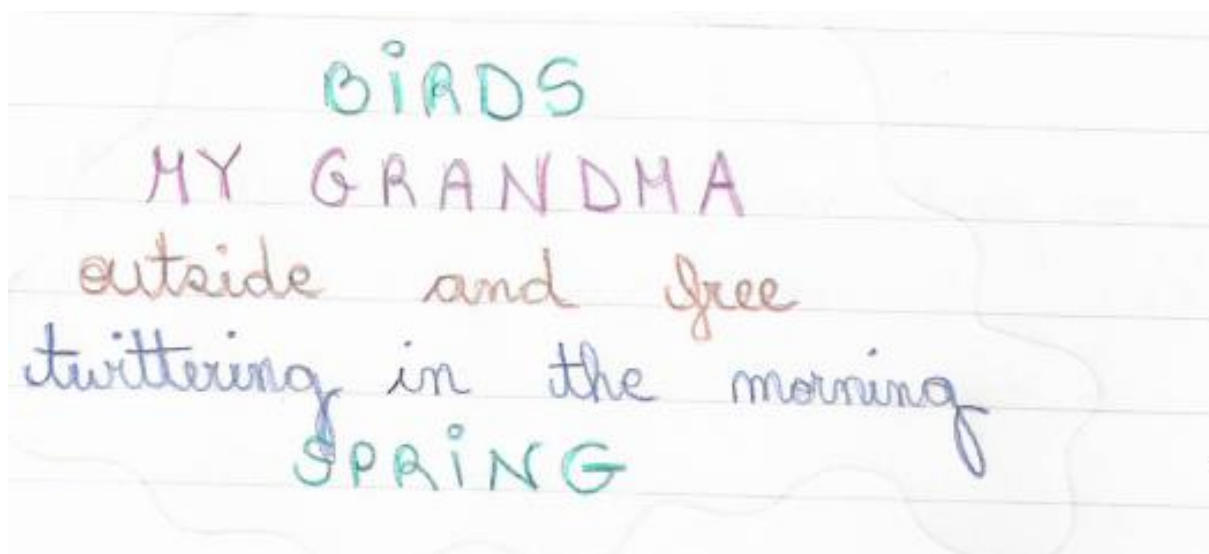 BiRDS
MY GRANDMA
outside and free
twittering in the morning
SPRiNG